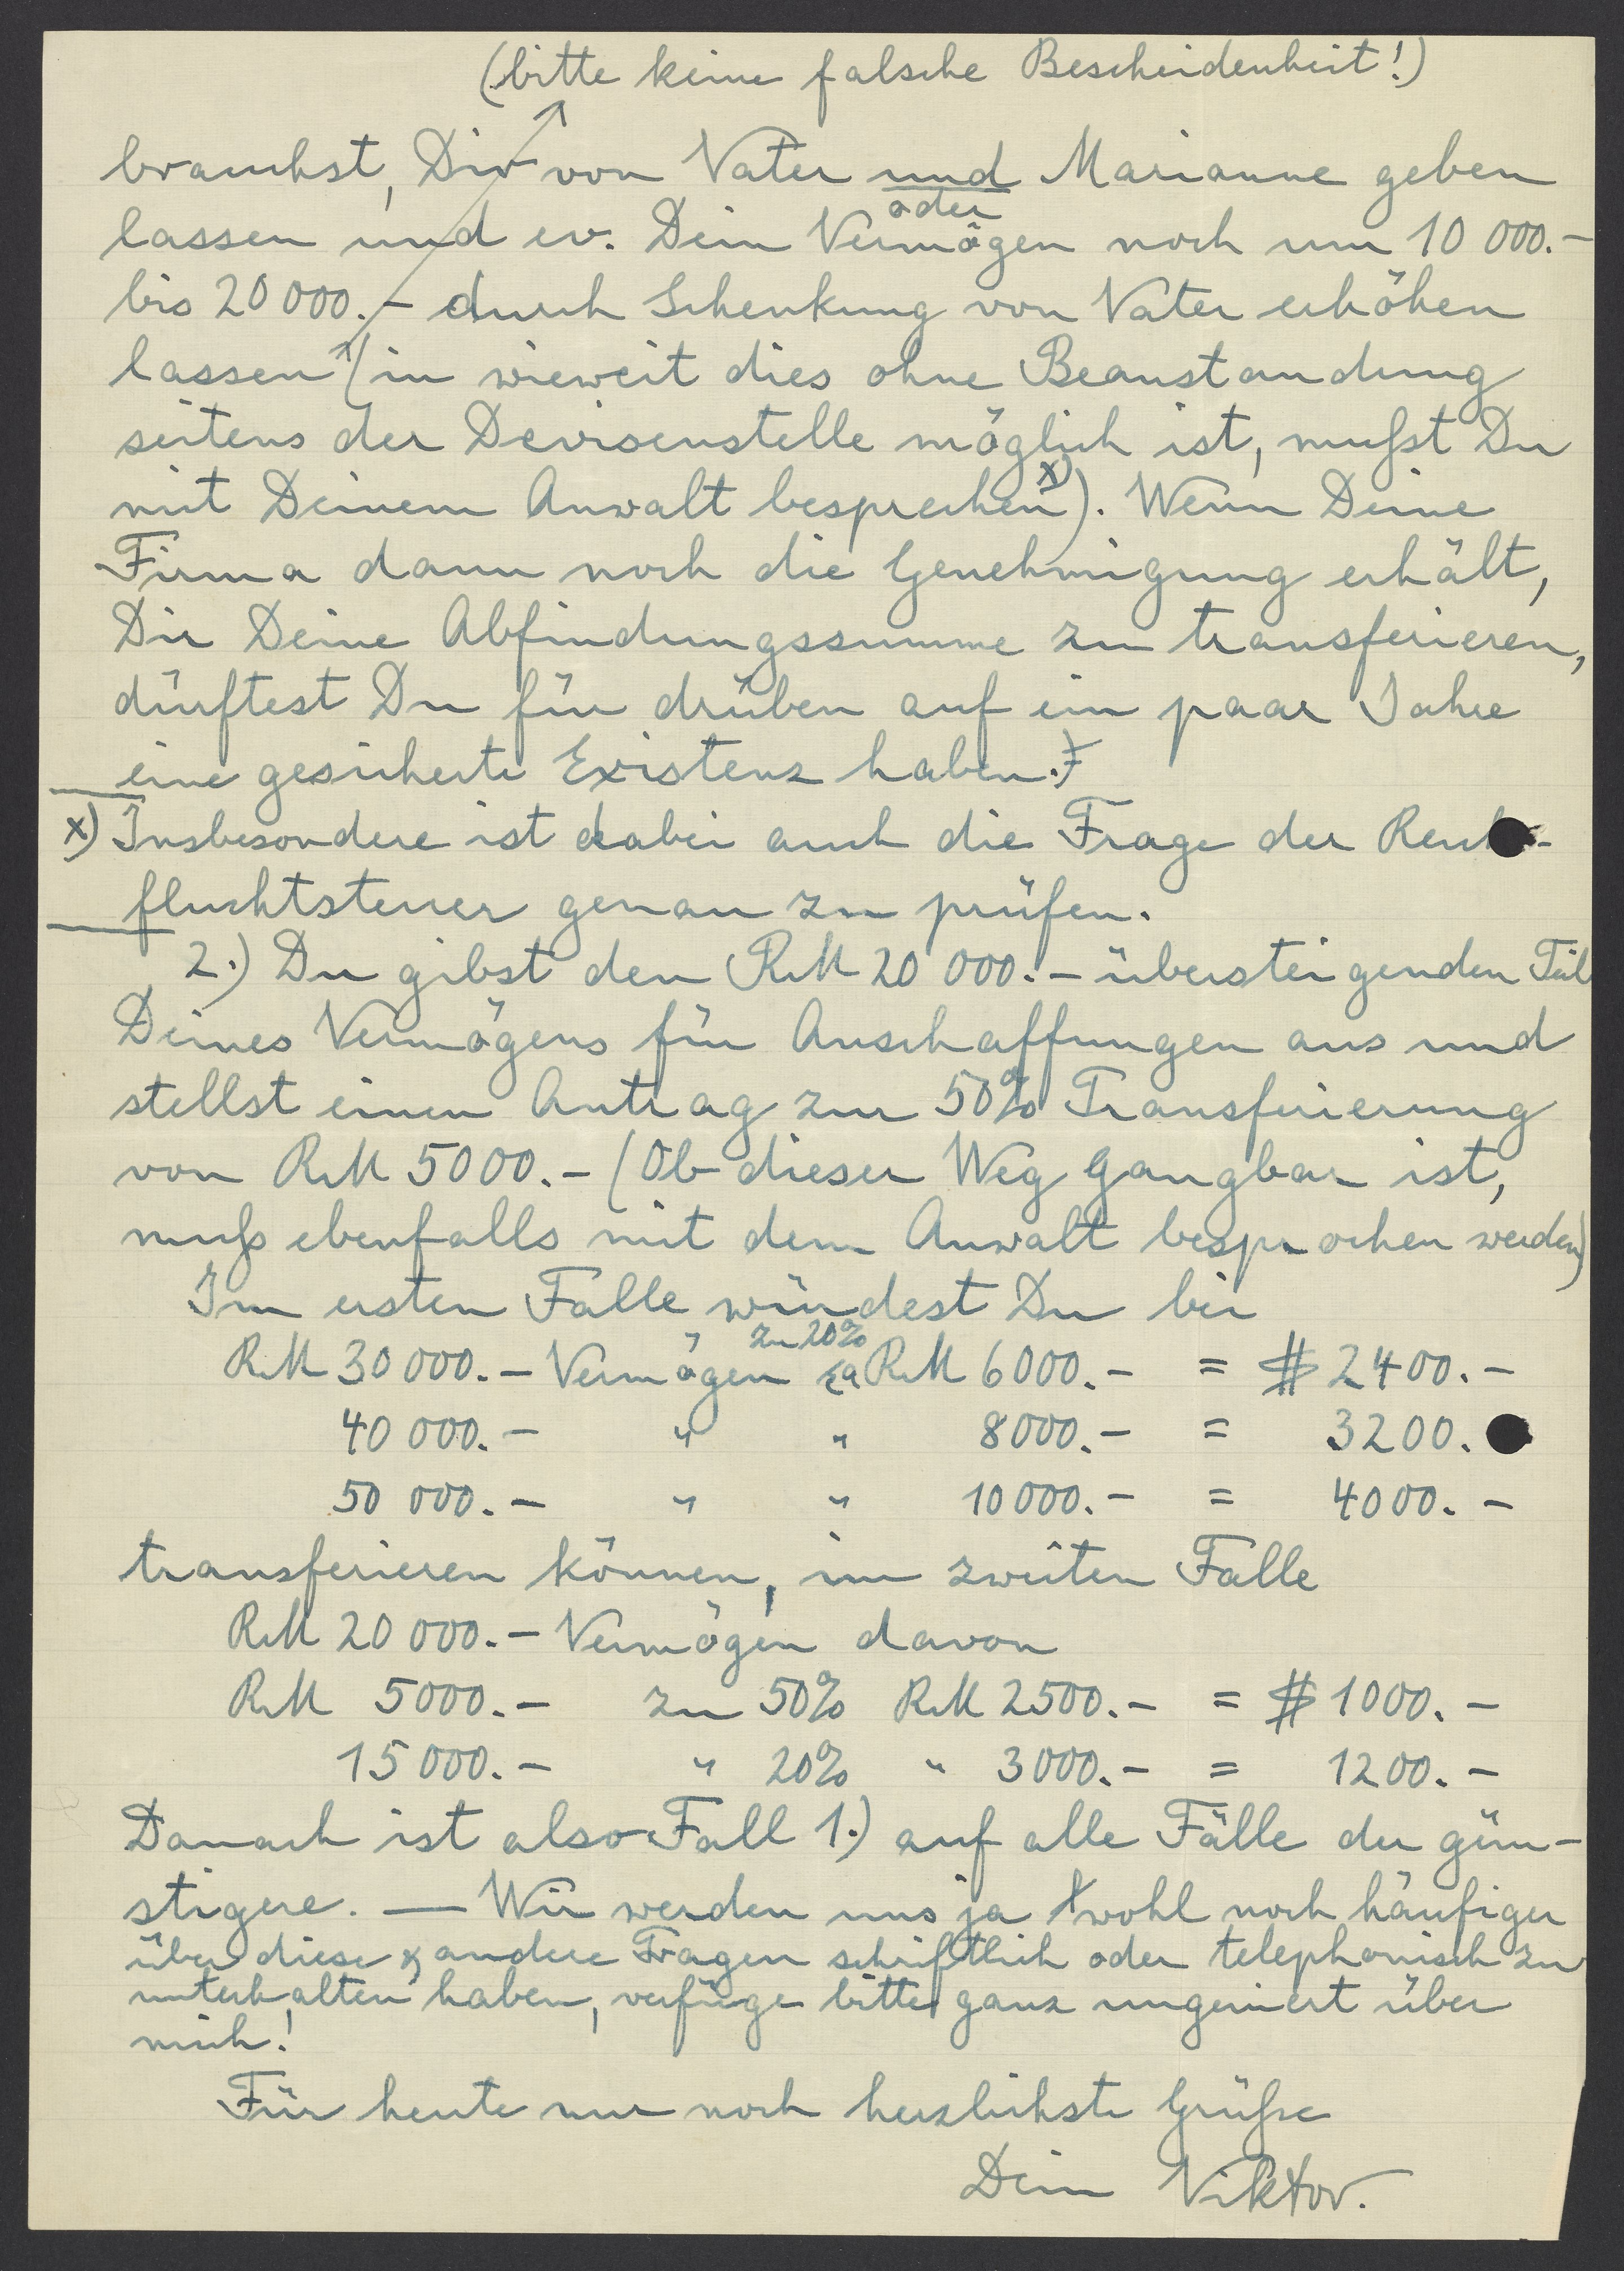 (bitte keine falsche Bescheidenheit!)
brauchst, Dir von Vater und Marianne geben
oder
lassen und ev. Dein Vermögen noch um 10 000.-
bis 20 000.- durch Schenkung von Vater erhöhen
lassen (in wieweit dies ohne Beanstandung
seitens der Devisenstelle möglich ist, mußt Du
mit Deinem Anwalt besprechen x)). Wenn Deine
Firma dann noch die Genehmigung erhält,
Dir Deine Abfindungssumme zu transferieren,
dürftest Du für drüben auf ein paar Jahre
eine gesicherte Existenz haben.
x) Insbesondere ist dabei auch die Frage der
fluchtsteuer genau zu prüfen.
2.) Du gibst den RM 20 000.- übersteigenden Teil
Deines Vermögens für Anschaffungen aus und
stellst einen Antrag zur 50% Transferierung
von RM 5000.- (Ob dieser Weg gangbar ist,
muß ebenfalls mit dem Anwalt besprochen werden)
Im ersten Falle würdest Du bei
zu 20%
RM 30 000.- Vermögen ca RM 6000.- = $ 2400.-
40 000.- " " 8000.- = 3200.
50 000.- " " 10 000.- = 4000.-
transferieren können, im zweiten Falle
RM 20 000.- Vermögen davon
RM 5000.- zu 50% RM 2500.- = $ 1000.-
15 000.- " 20% " 3000.- = 1200.-
Danach ist also Fall 1.) auf alle Fälle der gün-
stigere. — Wir werden uns ja wohl noch häufiger
über diese & andere Fragen schriftlich oder telephonisch zu
unterhalten haben, verfüge bitte ganz ungeniert über
mich!
Für heute nur noch herzlichste Grüße
Dein Viktor.